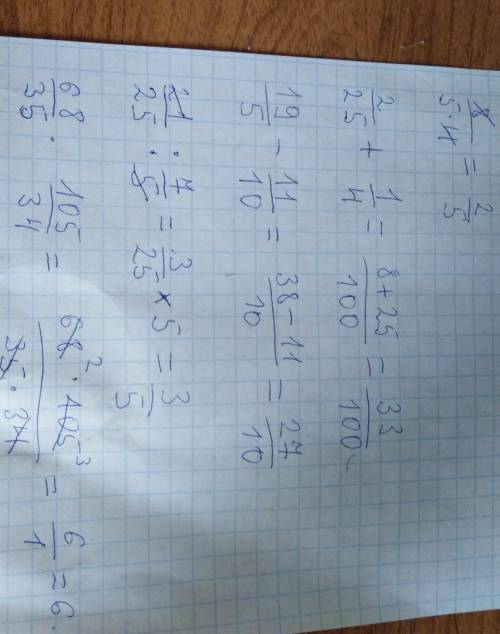 8/(5·4) = 2/5
2/25 + 1/4 = (8+25)/100 = 33/100
19/5 - 11/10 = (38-11)/10 = 27/10
21/25 : 7/5 = 3/25 × 5 = 3/5
68/35 · 105/34 = (68² · 105³)/(35 · 34) = 6/1 = 6.